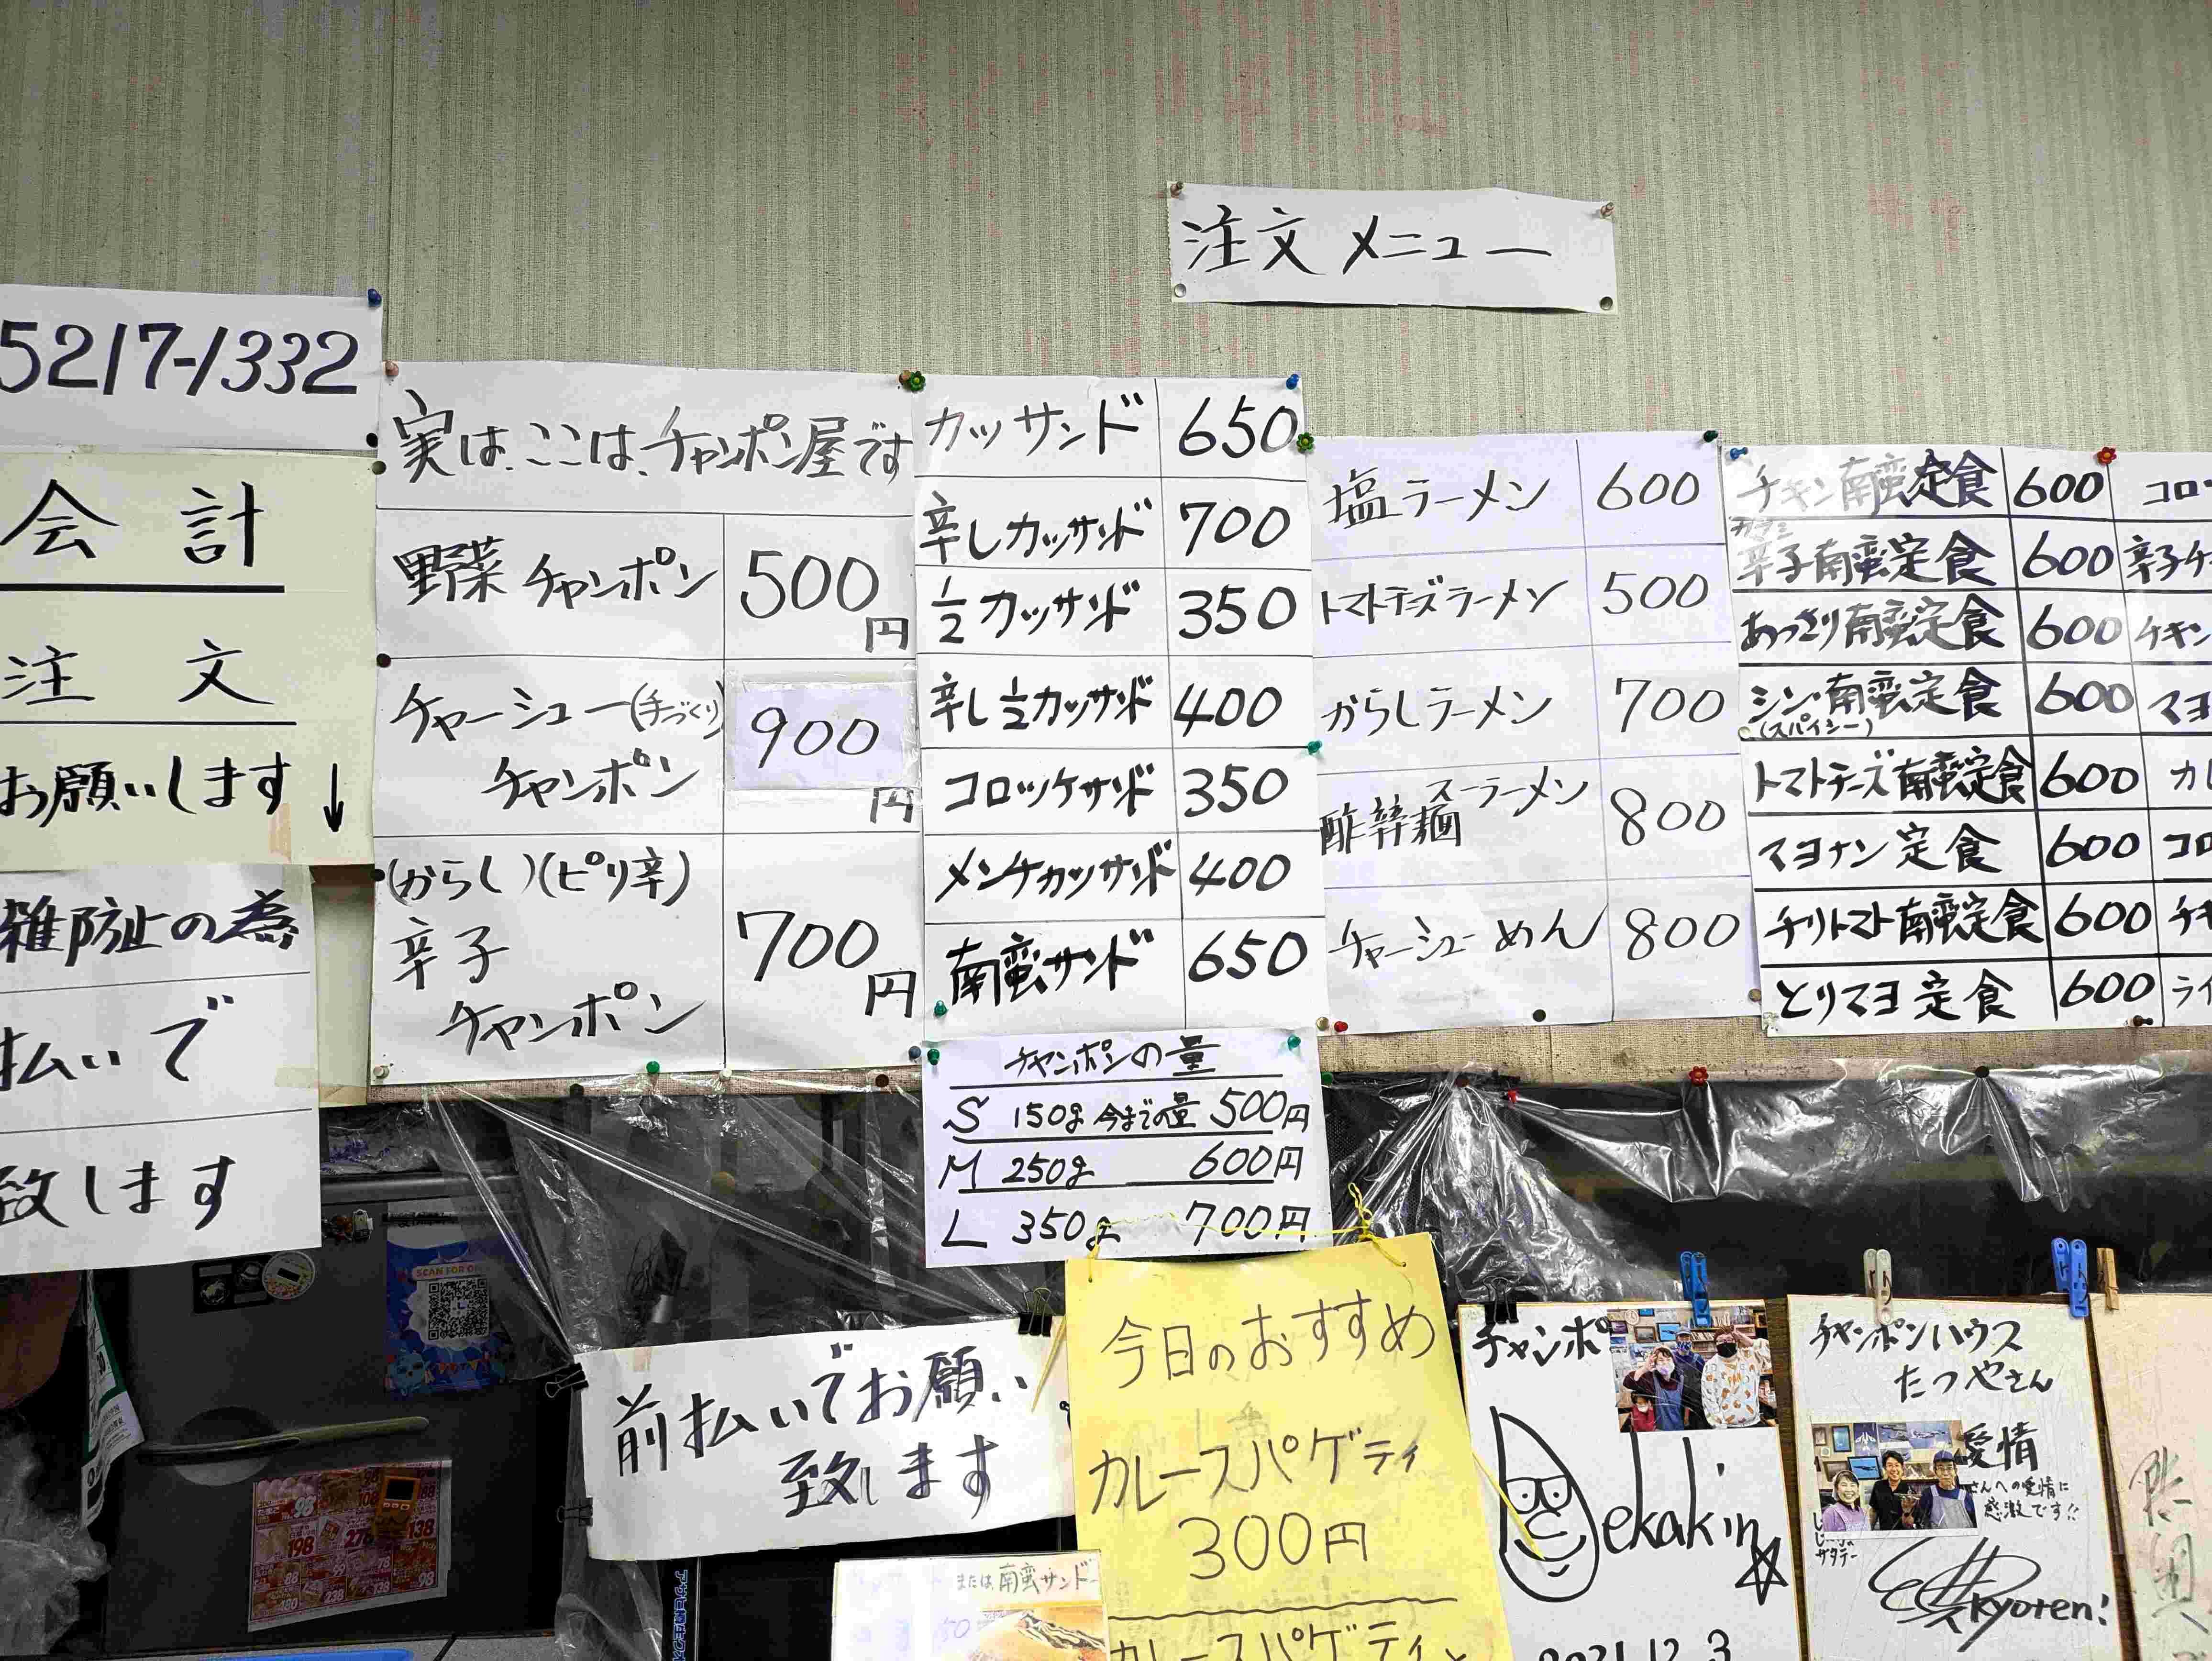 注文メニュー
5217-1332
会計
注文
お願いします↓
雑防止の為
払いで
致します
実は、ここは、チャンポン屋です
野菜チャンポン 500円
チャーシュー(手づくり)
チャンポン 900円
(からし)(ピリ辛)
辛子
チャンポン 700円
カッサンド 650
辛しカッサンド 700
1/2カッサンド 350
辛し1/2カッサンド 400
コロッケサンド 350
メンチカッサンド 400
南蛮サンド 650
チャンポンの量
S 150g 今までの量 500円
M 250g 600円
L 350g 700円
塩ラーメン 600
トマトチーズラーメン 500
からしラーメン 700
スーラーメン
800
チャーシューめん 800
チキン南蛮定食 600
辛子南蛮定食 600
あっさり南蛮定食 600
シン・南蛮定食 600
(スパイシー)
トマトチーズ南蛮定食 600
マヨナン定食 600
チリトマト南蛮定食 600
とりマヨ定食 600
コロ
辛子チ
チキン
マヨ
カレ
コロ
チキ
ライ
前払いでお願い
致します
今日のおすすめ
カレースパゲティ
300円
カレースパゲティ
または南蛮サンド
SCAN FOR
チャンポ
ekakin
2021.12.3
チャンポンハウス
たつやさん
愛情
さんへの愛情に
感激です!!
Kyoren!